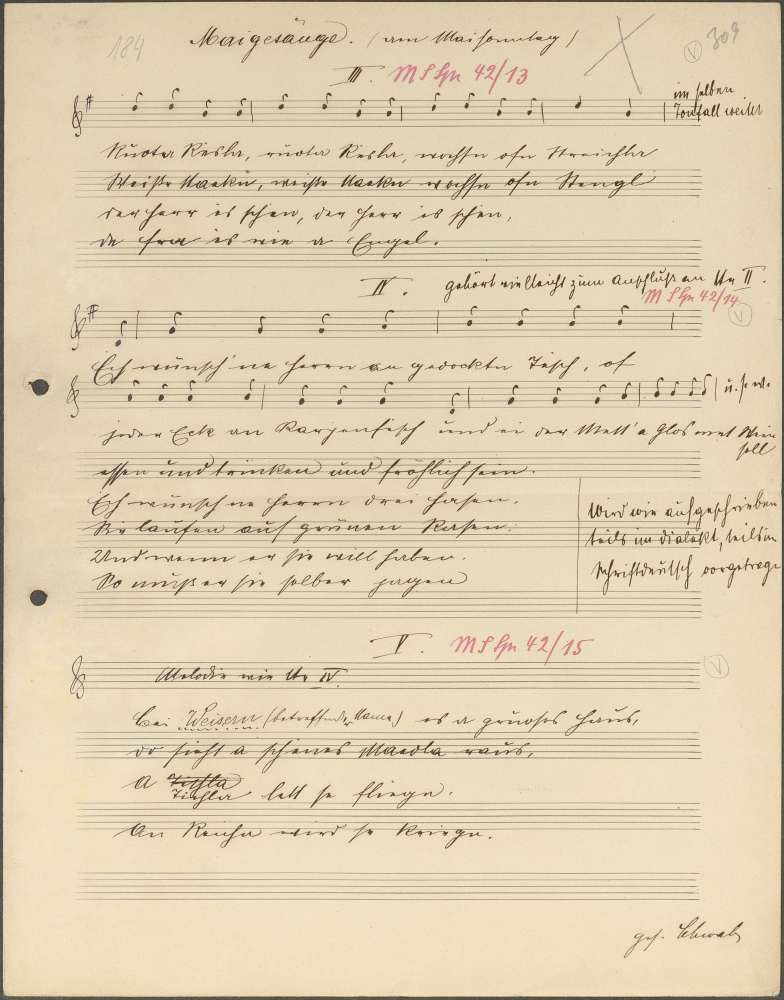 184
Maigesänge. (am Maisonntag)
V 309
III. MSHn 42/13
im selben
Tonfall weiter
Ruota Riesla, ruota Riesla, wochsn ofn Streichla
Weiße Naeku, weiße Naeku wochsn ofn Stengl
der Herr is schen, der Herr is schen,
de Fra is wie a Engel.
IV. gehört vielleicht zum Anschluß an Nr II.
MSHn 42/14
V
Ech wünsch ne Herrn an gedockta Tisch, of
u. s. w.
jeder Eck an Karpenfisch und ei der Mett' a Glos met Wein
soll
essen und trinken und fröhlich sein.
Ech wünsch ne Herrn drei Hasen.
Sie laufen auf grünen Rasen.
Und wenn er sie will haben.
So muß er sie selber jagen
Wird wie aufgeschrieben
teils im Dialekt, teils in
Schriftdeutsch vorgetrage
V. MSHn 42/15
V
Melodie wie Nr IV.
Bei Weisern (betreffende Name) es a gruoses Haus,
do sieht a schenes Maedla raus,
A Tichla
Tichla lett se fliega.
An Reicha wird se kriega.
ges. Schwab